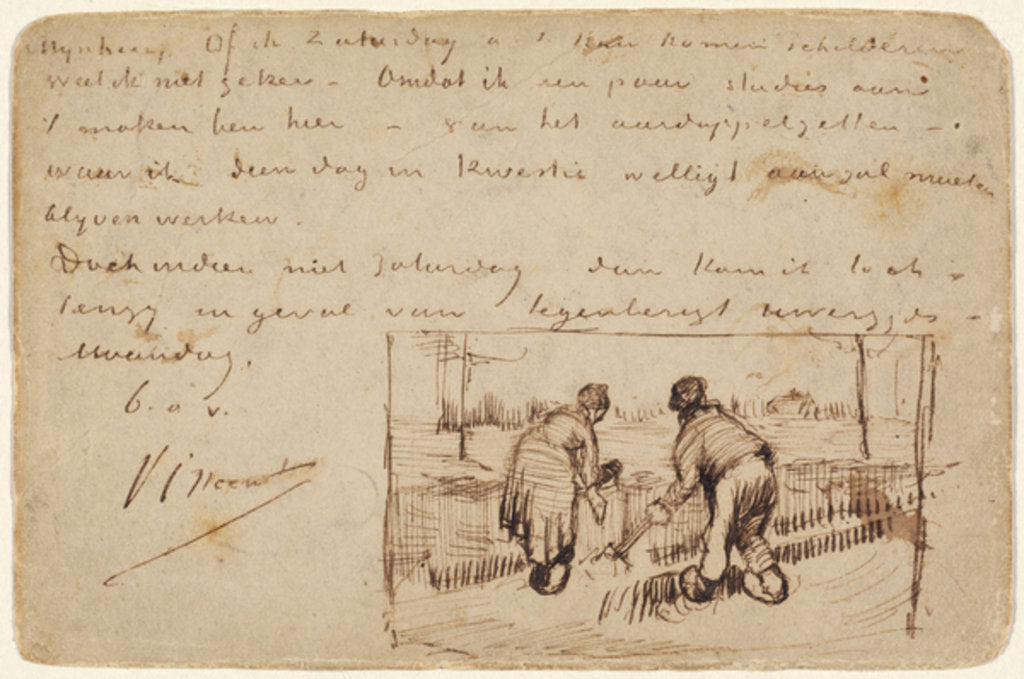 Mynheer, Of ik Zaturdag a s kan komen schilderen
weet ik niet zeker - Omdat ik een paar studies aan
't maken ben hier - van het aardappelzetten -
waar ik dien dag in kwestie welligt aan zal moeten
blyven werken.
Doch indien niet Zaturdag dan kom ik toch -
tenzy in geval van tegenberigt uwerzyds -
Maandag.
b. a v.
Vincent